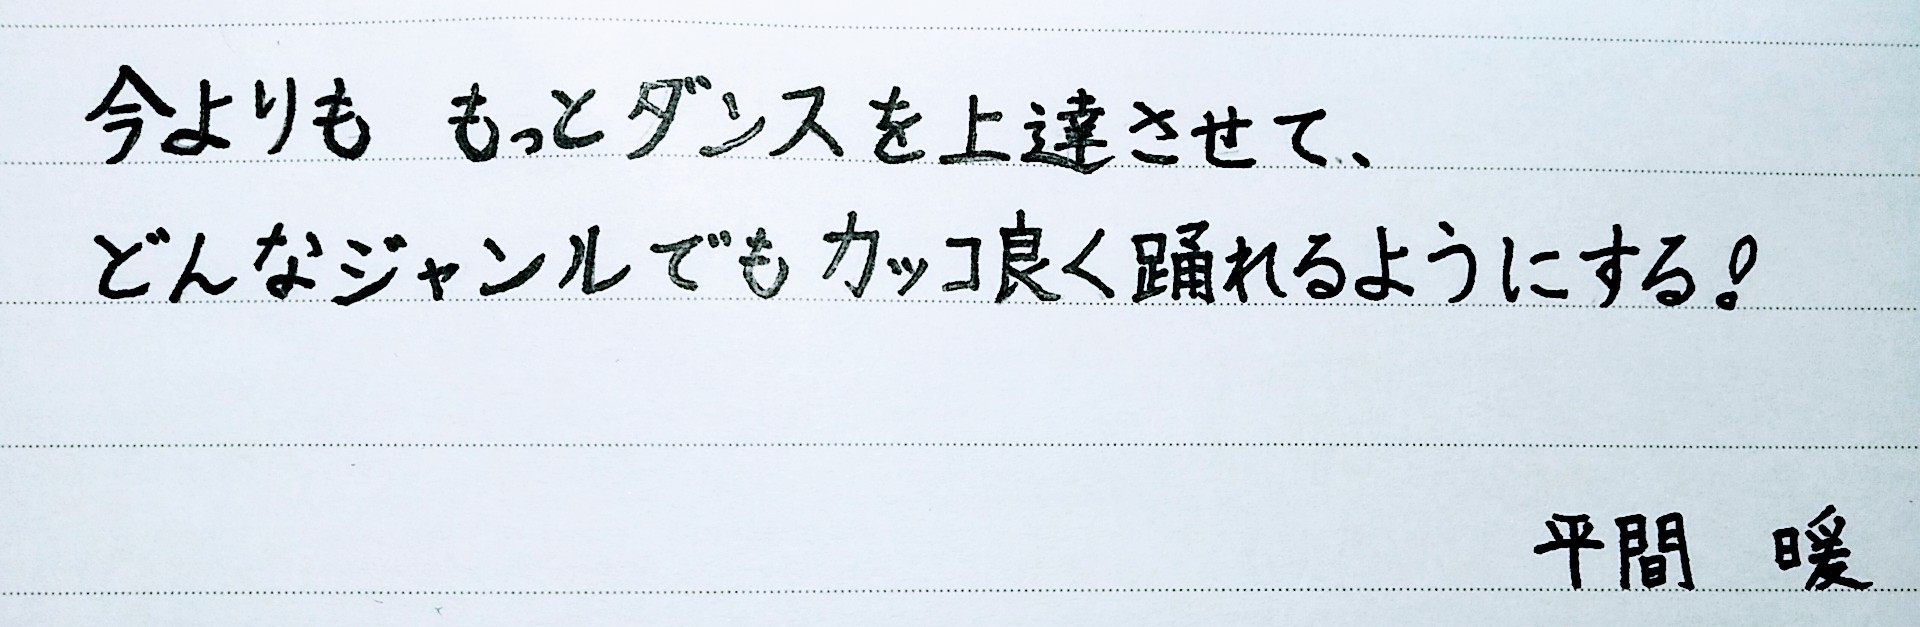 今よりも もっとダンスを上達させて、
どんなジャンルでもカッコ良く踊れるようにする!
平間 暖